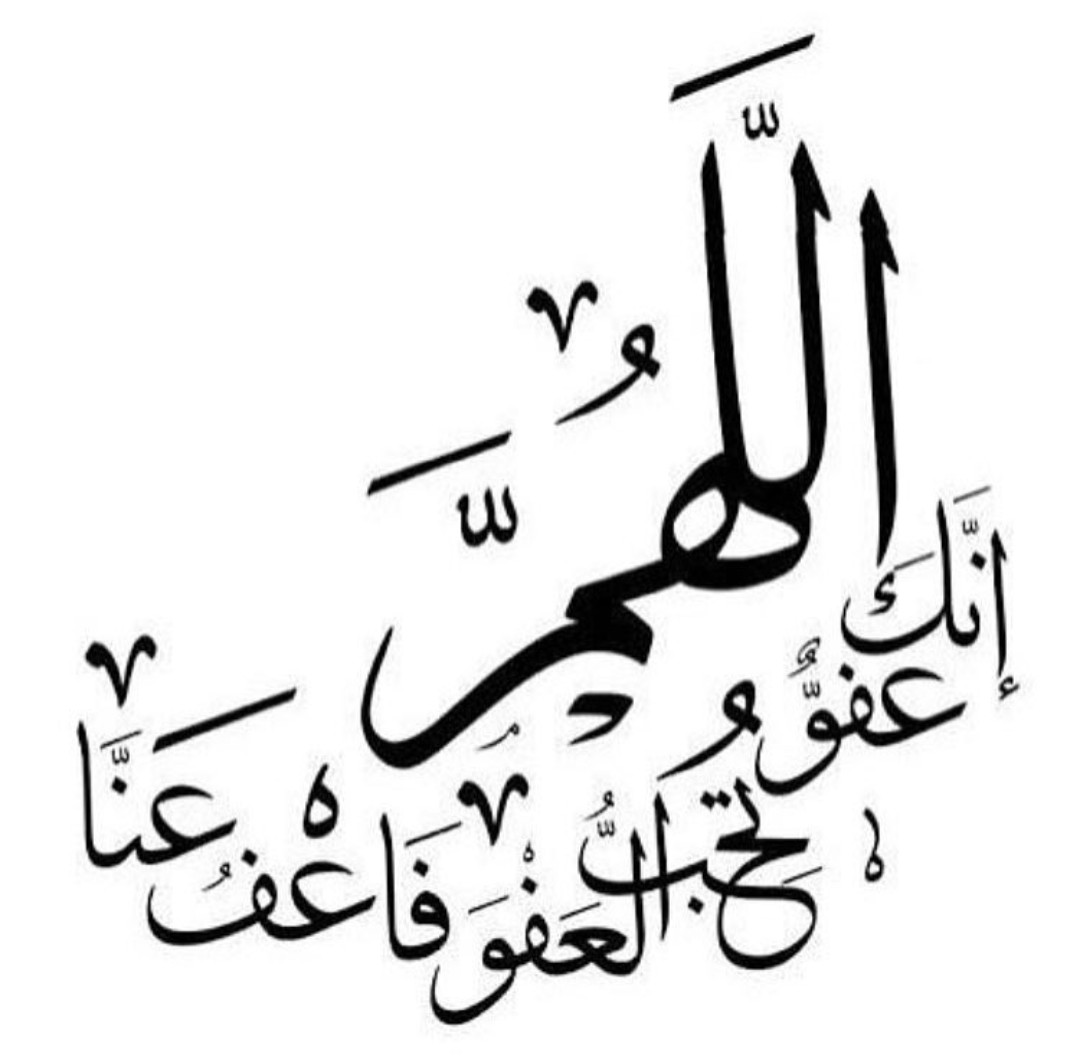 اللَّهُمَّ
إِنَّكَ
عَفُوٌّ
تُحِبُّ
الْعَفْوَ
فَاعْفُ
عَنَّا